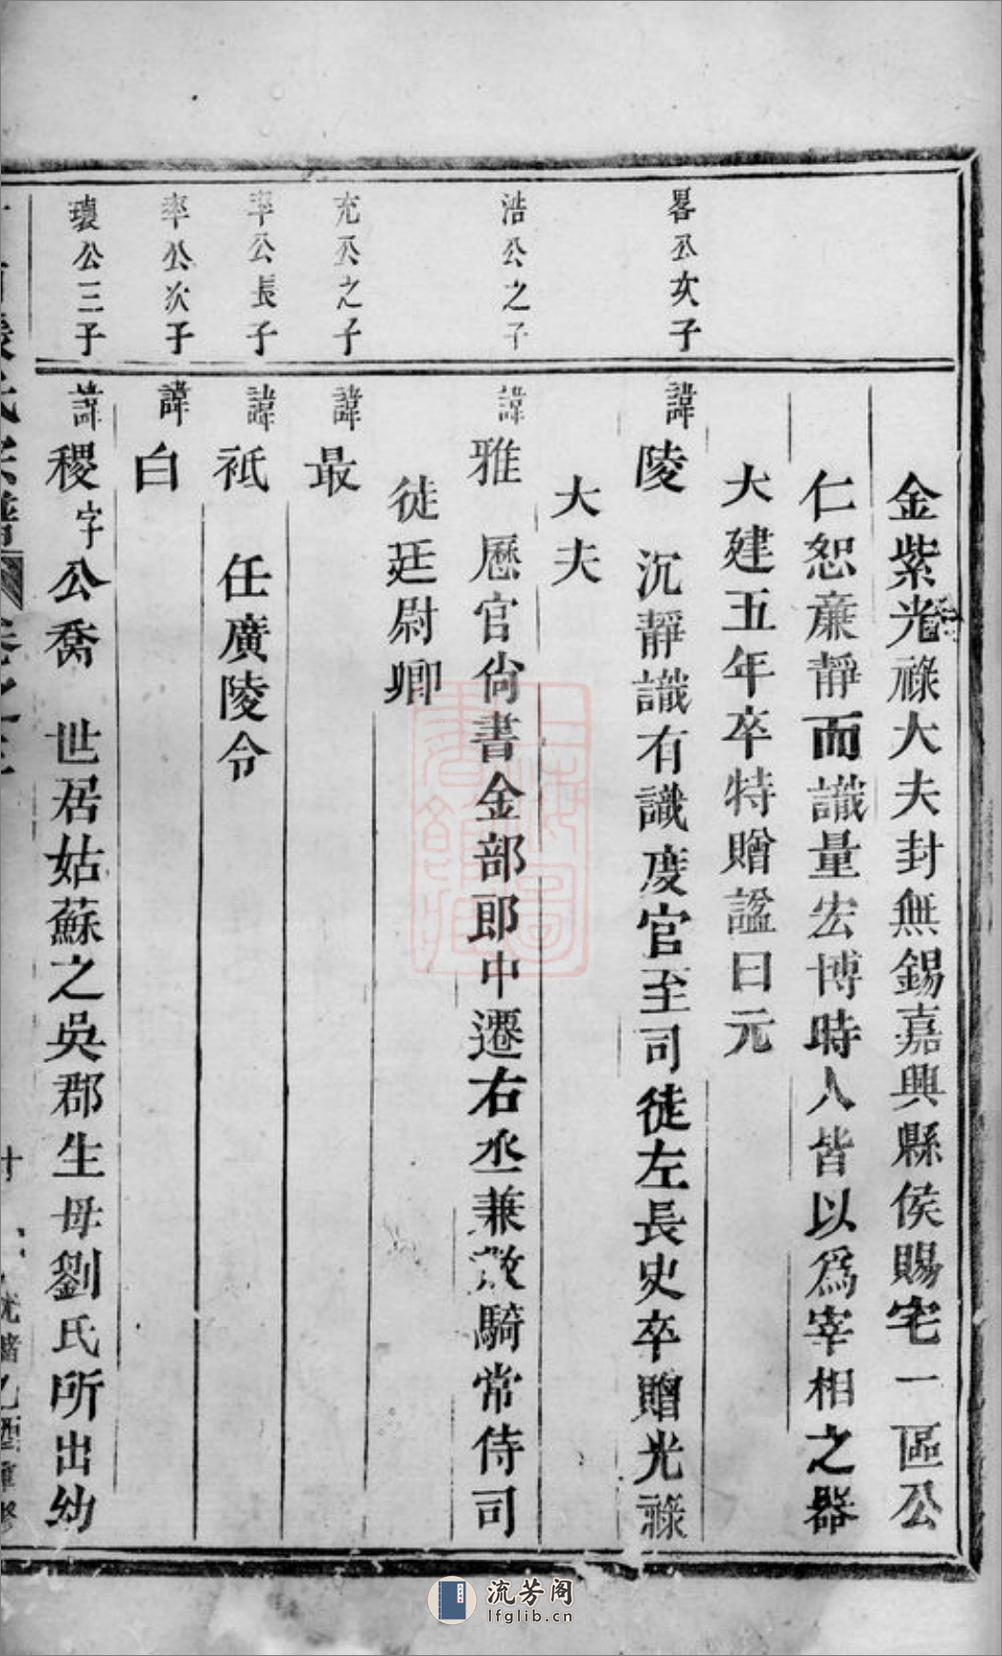 金紫光祿大夫封無錫嘉興縣侯賜宅一區公
仁恕亷靜而識量宏博時人皆以爲宰相之器
大建五年卒特贈諡曰元
畧公次子
諱陵 沉靜識有識度官至司徒左長史卒贈光祿
大夫
浩公之子
諱雅 厯官尙書金部郎中遷右丞兼散騎常侍司
徒廷尉卿
充公之子
諱最
率公長子
諱祇 任廣陵令
率公次子
諱白
瓌公三子
諱稷字公喬 世居姑蘇之吳郡生母劉氏所出幼
流芳阁
lfglib.cn